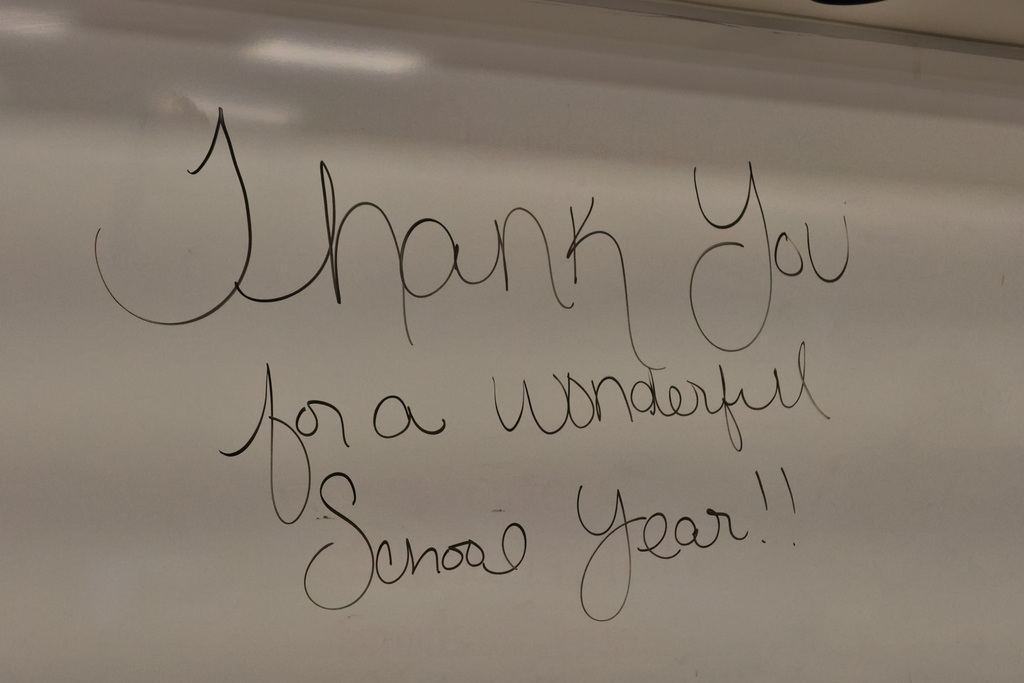 Thank You
for a Wonderful
School Year!!